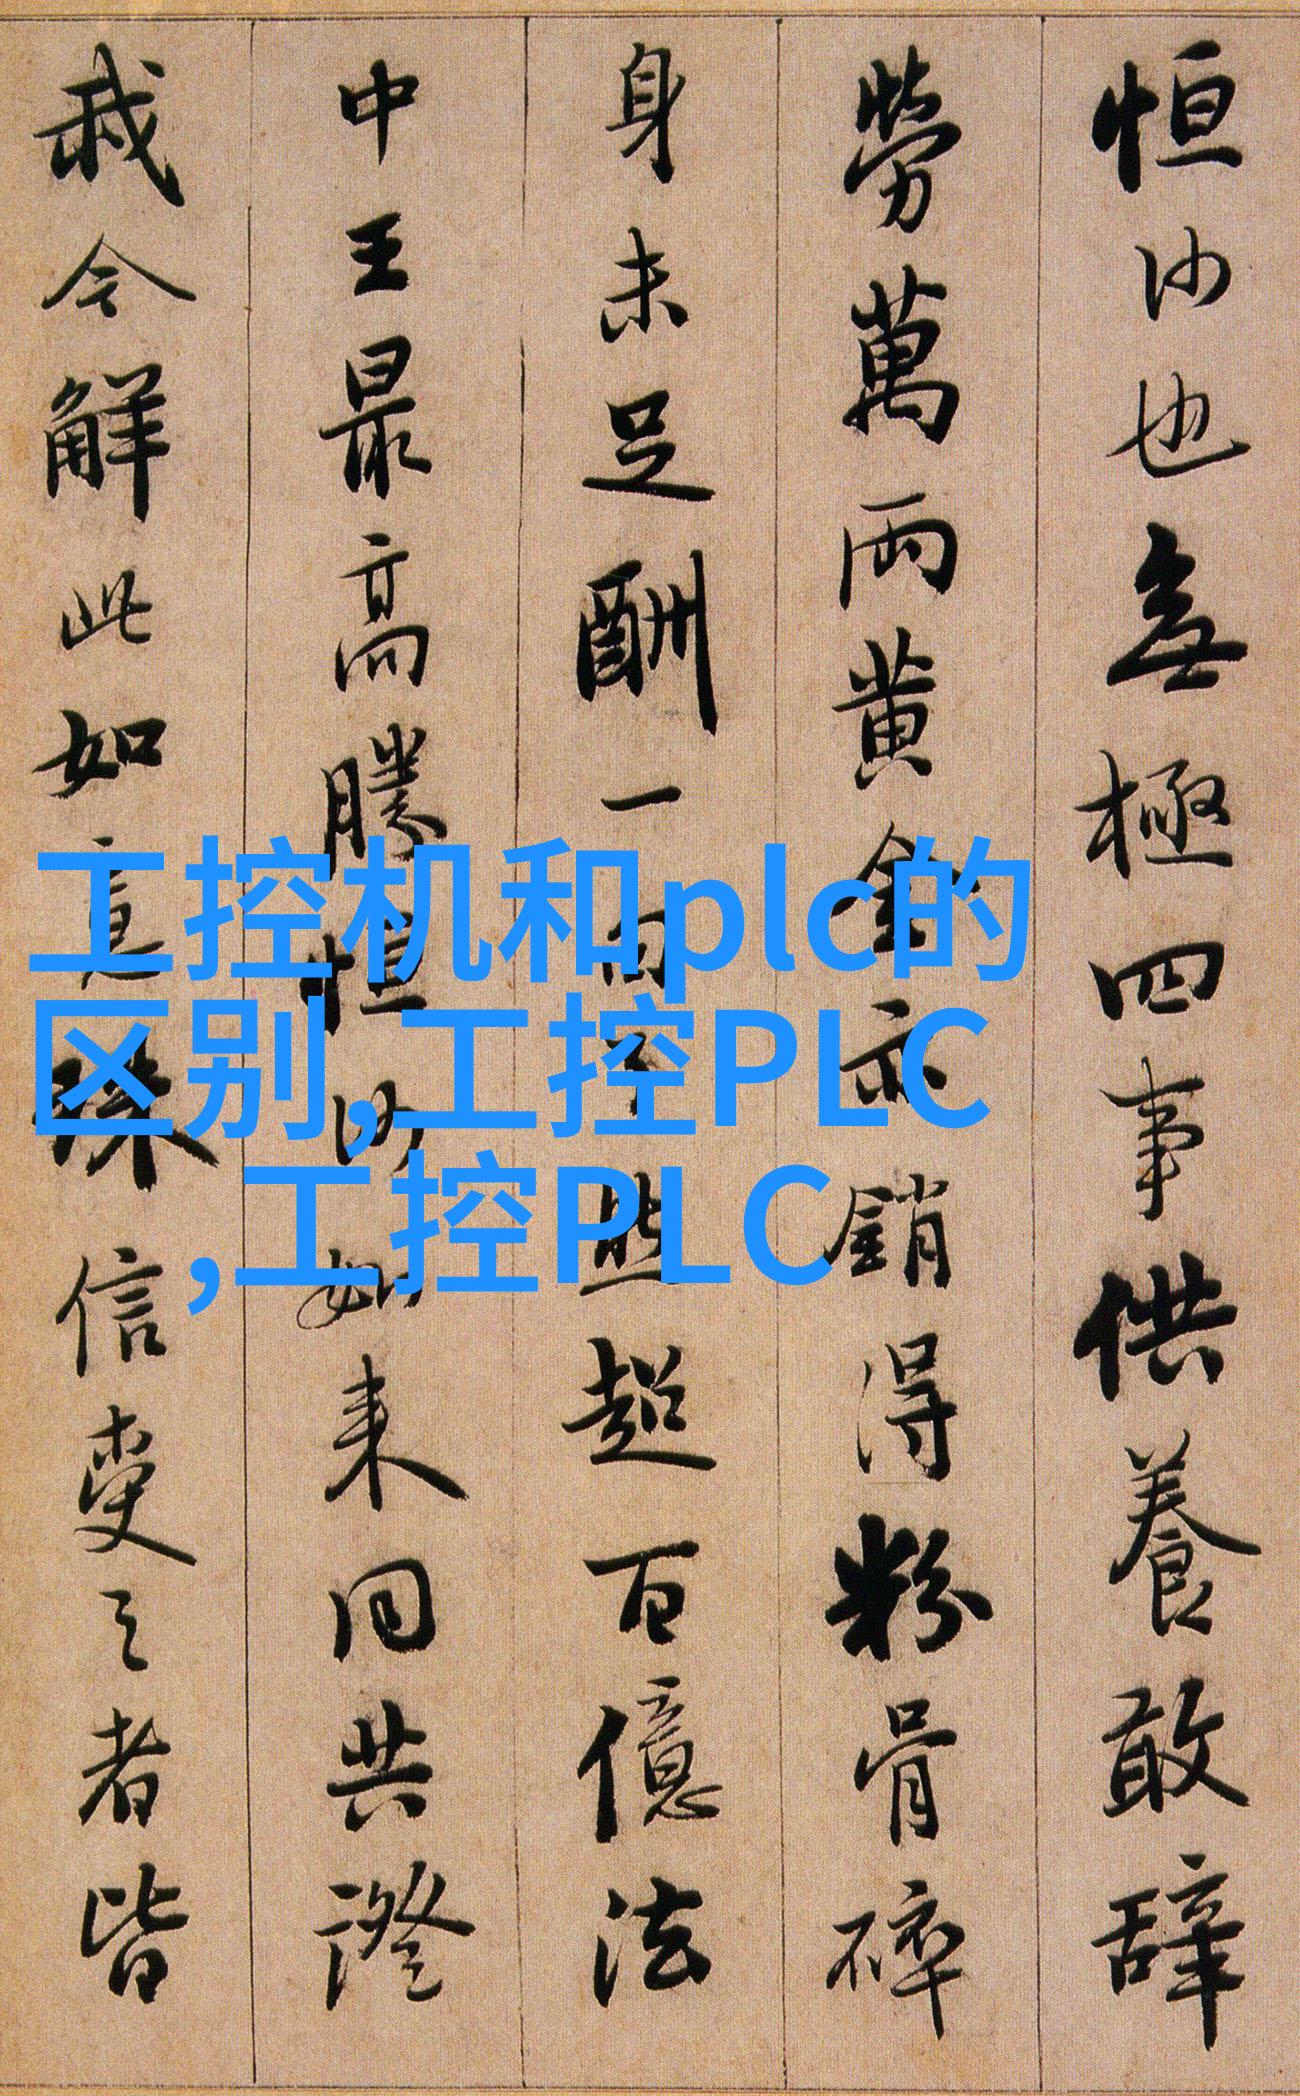 恒沙也無極四事供養敢辞
勞萬兩黄金亦銷得粉骨碎
身未足酬一句了然超百億法
中王最高勝恒沙如來同共證
我今解此如意珠信受之者皆
工控机和plc的
区别,工控PLC
,工控PLC